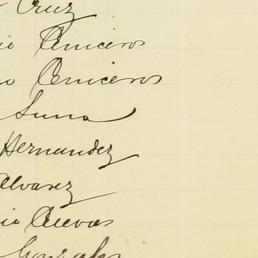 Cruz
io Ceniceros
o Ceniceros
Luna
Hernandez
Alvarez
io Cuevas
Gonzales